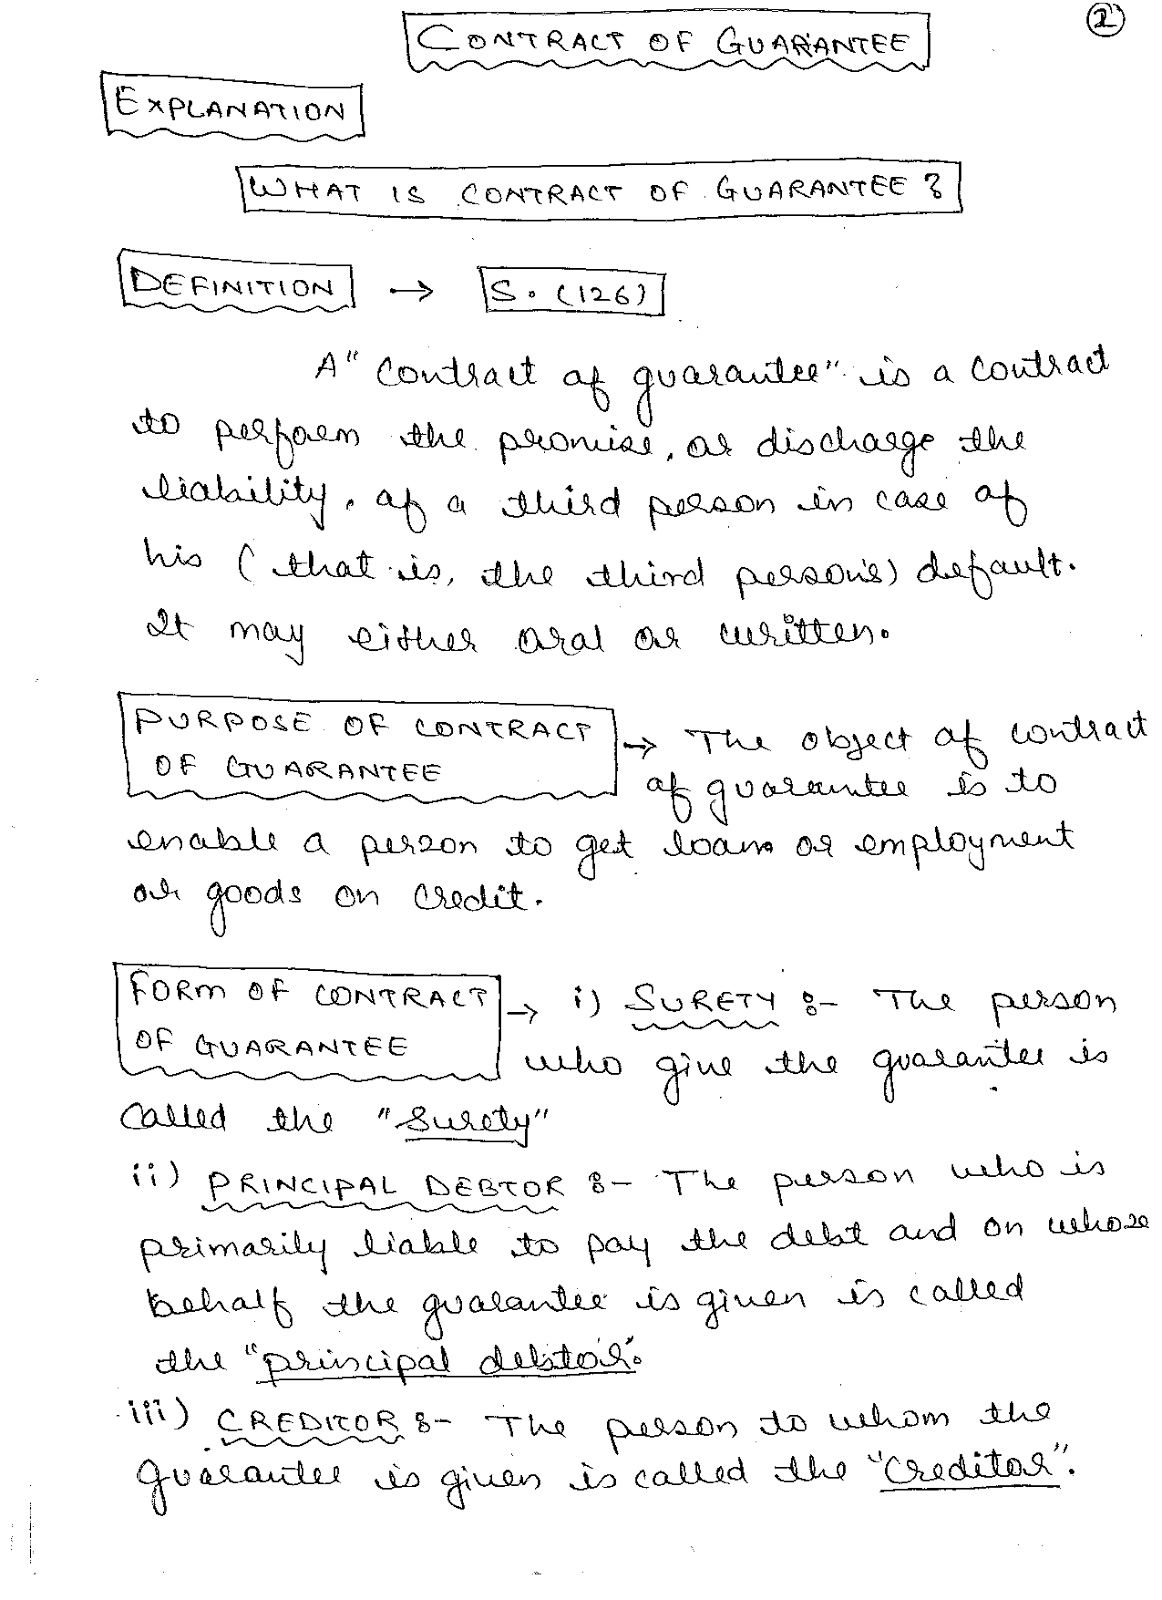 2
CONTRACT OF GUARANTEE
EXPLANATION
WHAT IS CONTRACT OF GUARANTEE ?
DEFINITION → S. (126)
A "Contract of guarantee" is a contract
to perform the promise, or discharge the
liability, of a third person in case of
his ( that is, the third person's) default.
It may either oral or written.
PURPOSE OF CONTRACT
OF GUARANTEE
→ The object of contract
of guarantee is to
enable a person to get loan or employment
or goods on credit.
FORM OF CONTRACT
OF GUARANTEE
→ i) SURETY :- The person
who give the guarantee is
called the "Surety"
ii) PRINCIPAL DEBTOR :- The person who is
primarily liable to pay the debt and on whose
behalf the guarantee is given is called
the "principal debtor".
iii) CREDITOR :- The person to whom the
guarantee is given is called the "Creditor".